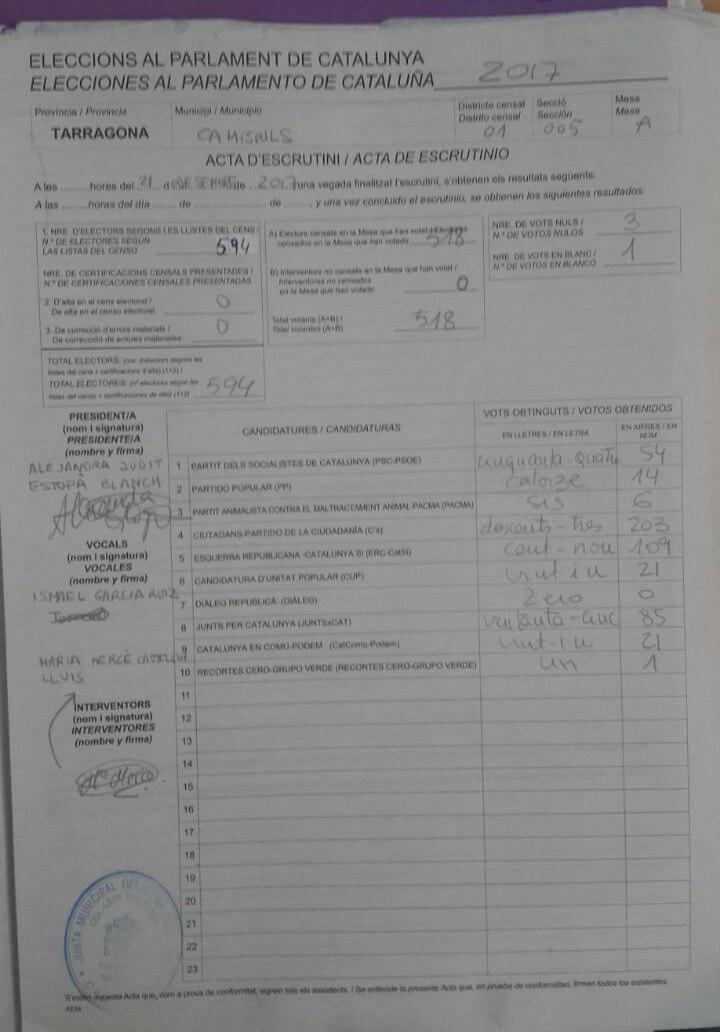 ELECCIONS AL PARLAMENT DE CATALUNYA
ELECCIONES AL PARLAMENTO DE CATALUÑA 2017
Província / Provincia
TARRAGONA
Municipi / Municipio
CAMBRILS
Districte censal
Distrito censal
01
Secció
Sección
005
Mesa
Mesa
A
ACTA D'ESCRUTINI / ACTA DE ESCRUTINIO
A les ..........hores del 21 de DESEMBRE de 2017 una vegada finalitzat l'escrutini, s'obtenen els resultats següents:
A las ..........horas del día ........ de .................... de ........, y una vez concluido el escrutinio, se obtienen los siguientes resultados:
1. NRE. D'ELECTORS SEGONS LES LLISTES DEL CENS /
N.º DE ELECTORES SEGÚN
LAS LISTAS DEL CENSO 594
NRE. DE CERTIFICACIONS CENSALS PRESENTADES /
N.º DE CERTIFICACIONES CENSALES PRESENTADAS
2. D'alta en el cens electoral /
De alta en el censo electoral: 0
3. De correcció d'errors materials /
De corrección de errores materiales: 0
TOTAL ELECTORS: (nre. d'electors segons les
llistes del cens + certificacions d'alta) (1+2) /
TOTAL ELECTORES: (nº electores según las
listas del censo + certificaciones de alta) (1+2) 594
A) Electors censats en la Mesa que han votat / Electores
censados en la Mesa que han votado 518
B) Interventors no censats en la Mesa que han votat /
Interventores no censados
en la Mesa que han votado 0
Total votants (A+B) /
Total votantes (A+B) 518
NRE. DE VOTS NULS /
N.º DE VOTOS NULOS 3
NRE. DE VOTS EN BLANC /
N.º DE VOTOS EN BLANCO 1
PRESIDENT/A
(nom i signatura)
PRESIDENTE/A
(nombre y firma)
ALEJANDRA JUDIT
ESTOPÀ BLANCH
VOCALS
(nom i signatura)
VOCALES
(nombre y firma)
ISMAEL GARCIA RUIZ
MARIA MERCÈ
LLUIS
INTERVENTORS
(nom i signatura)
INTERVENTORES
(nombre y firma)
Mª Mercè
CANDIDATURES / CANDIDATURAS
VOTS OBTINGUTS / VOTOS OBTENIDOS
EN LLETRES / EN LETRA
EN XIFRES / EN NUM
1 PARTIT DELS SOCIALISTES DE CATALUNYA (PSC-PSOE) cinquanta-quatre 54
2 PARTIDO POPULAR (PP) catorze 14
3 PARTIT ANIMALISTA CONTRA EL MALTRACTAMENT ANIMAL-PACMA (PACMA) sis 6
4 CIUTADANS-PARTIDO DE LA CIUDADANÍA (C's) doscents-tres 203
5 ESQUERRA REPUBLICANA -CATALUNYA SÍ (ERC-CatSí) cent-nou 109
6 CANDIDATURA D'UNITAT POPULAR (CUP) vint-i-u 21
7 DIÀLEG REPUBLICÀ (DIÀLEG) Zero 0
8 JUNTS PER CATALUNYA (JUNTSxCAT) vuitanta-cinc 85
9 CATALUNYA EN COMÚ-PODEM (CatComú-Podem) vint-i-u 21
10 RECORTES CERO-GRUPO VERDE (RECORTES CERO-GRUPO VERDE) un 1
11
12
13
14
15
16
17
18
19
20
21
22
23
JUNTA MUNICIPAL DEL
S'estén aquesta Acta que, com a prova de conformitat, signen tots els assistents. / Se extiende la presente Acta que, en prueba de conformidad, firman todos los asistentes.